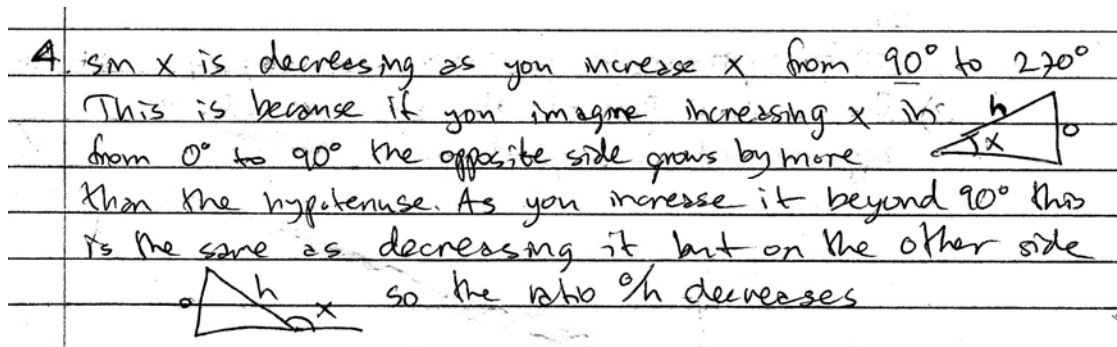 4. sin x is decreasing as you increase x from 90° to 270°
This is because if you imagine increasing x in h o x
from 0° to 90° the opposite side grows by more
than the hypotenuse. As you increase it beyond 90° this
is the same as decreasing it but on the other side
o h x so the ratio o/h decreases